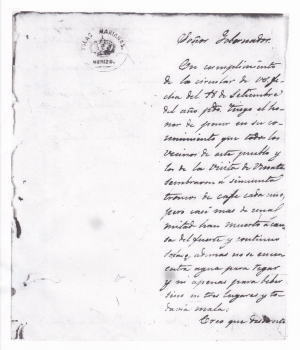 ISAAC MARIANO
Señor Gobernador.
En cumplimiento
de la circular de VS. fe
cha del 18 de Setiembre
del año pdo. tengo el ho
nor de poner en su co
nocimiento que todos los
vecinos de este pueblo y
los de la Visita de
sembraron á cincuenta
troncos de cafe cada uno,
pero casi mas de la
mitad han muerto á cau
sa del fuerte y continuo
ademas no se encu
entra agua para regar
y ni apenas para beber
sino en tres lugares y to
davia mala;
Creo que